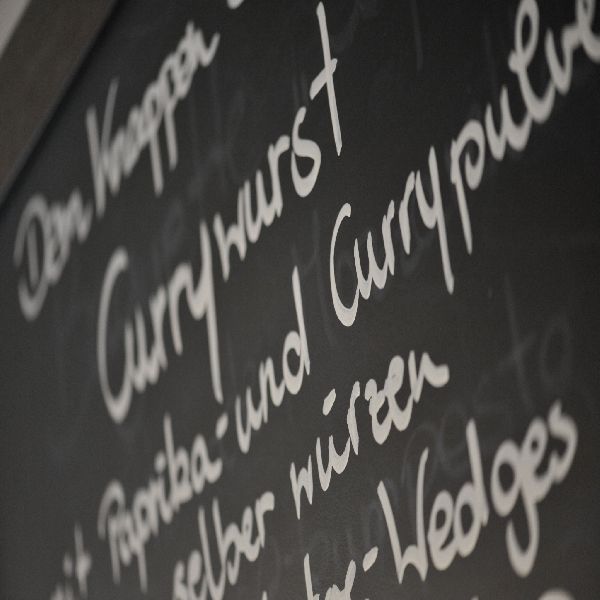 Den Knappen
Currywurst
mit Paprika- und Currypulve
selber würzen
-Wedges